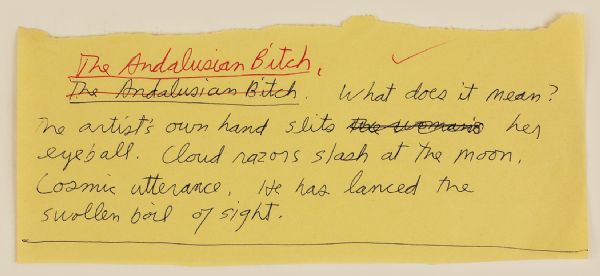 The Andalusian Bitch,
The Andalusian Bitch. What does it mean?
The artist's own hand slits the woman's her
eyeball. Cloud razors slash at the moon.
Cosmic utterance. He has lanced the
swollen boil of sight.